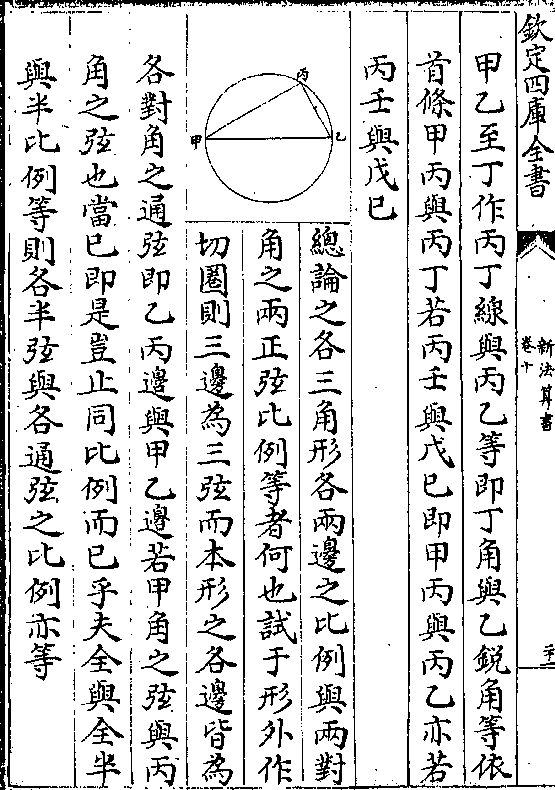 欽定四庫全書
新法算書
卷十
二十一
甲乙至丁作丙丁線與丙乙等即丁角與乙銳角等依
首條甲丙與丙丁若丙壬與戊己即甲丙與丙乙亦若
丙壬與戊己
丙
甲
乙
總論之各三角形各兩邊之比例與兩對
角之兩正弦比例等者何也試于形外作
切圈則三邊為三弦而本形之各邊皆為
各對角之通弦即乙丙邊與甲乙邊若甲角之弦與丙
角之弦也當已即是豈止同比例而已乎夫全與全半
與半比例等則各半弦與各通弦之比例亦等